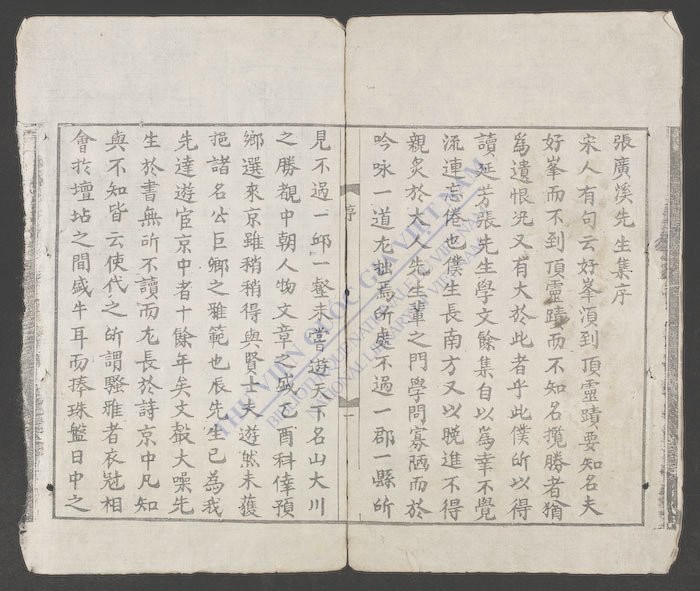 張廣溪先生集序
宋人有句云好峯湏到頂靈蹟要知名夫
好峯而不到頂靈蹟而不知名攬勝者猶
爲遺恨况又有大於此者乎此僕所以得
讀延芳張先生學文餘集自以爲幸不覺
流連忘倦也僕生長南方又以晚進不得
親炙於大人先生軰之門學問寡陋而於
吟咏一道尤拙焉所處不過一郡一縣所
序
一
見不過一邱一壑未嘗遊天下名山大川
之勝覩中朝人物文章之盛乙酉科倖預
鄉選來京雖稍稍得與賢士大夫遊然未獲
挹諸名公巨卿之雅範也辰先生已為我
先達遊宦京中者十餘年矣文聲大噪先
生於書無所不讀而尤長於詩京中凡知
與不知皆云使代之所謂騷雅者衣冠相
會於壇坫之間盛牛耳而捧珠盤日中之
THƯ VIỆN QUỐC GIA VIỆT NAM
BIBLIOTHÈQUE NATIONALE DU VIETNAM
NATIONAL LIBRARY OF VIETNAM